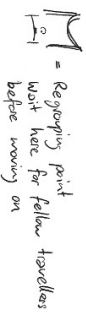 = Regrouping point
Wait here for fellow travellers
before moving on